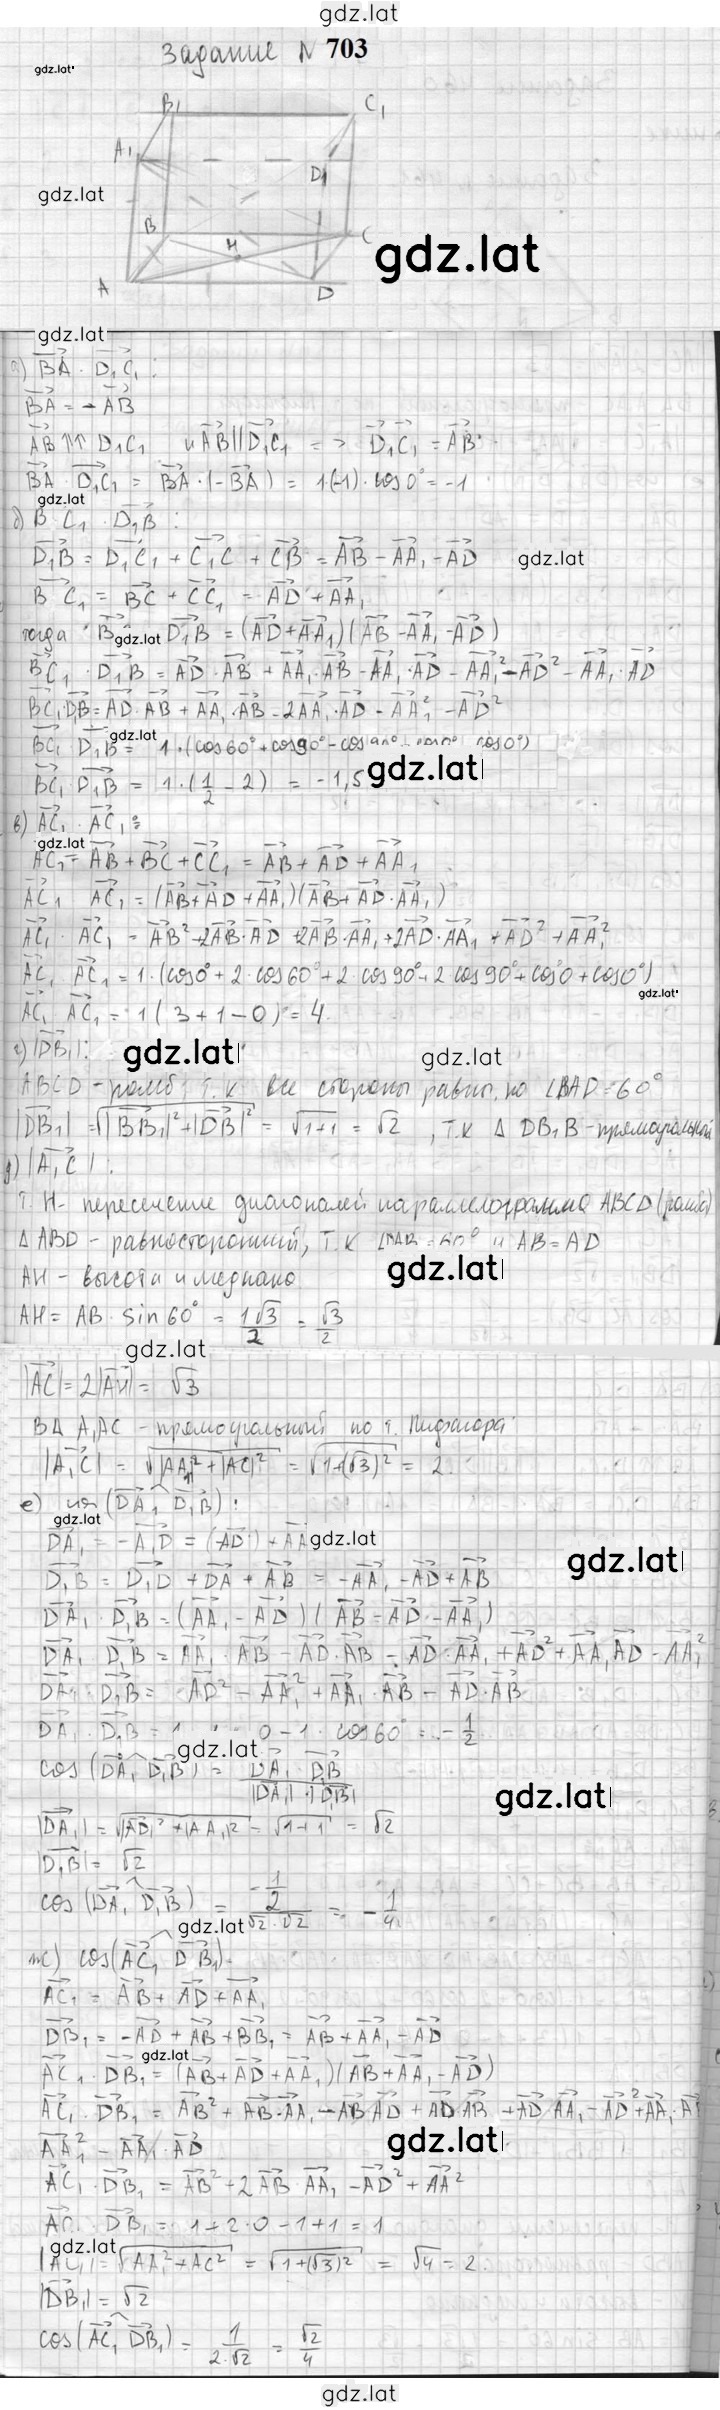 gdz.lat
Задание N 703
gdz.lat
B₁ C₁
A₁ D₁
gdz.lat
B H C
gdz.lat
A D
gdz.lat
а) BA · D₁C₁ :
BA = - AB
AB ↑↑ D₁C₁ и AB || D₁C₁ => D₁C₁ = AB
BA · D₁C₁ = BA · (-BA) = 1·(-1)·cos0° = -1
gdz.lat
б) B C₁ · D₁B :
D₁B = D₁C₁ + C₁C + CB = AB - AA₁ - AD
gdz.lat
B C₁ = BC + CC₁ = AD + AA₁
тогда B gdz.lat D₁B = (AD + AA₁)(AB - AA₁ - AD)
BC₁ · D₁B = AD · AB + AA₁ · AB - AA₁ · AD - AA₁² - AD² - AA₁ · AD
BC₁·D₁B = AD · AB + AA₁ · AB - 2AA₁ · AD - AA₁² - AD²
gdz.lat
BC₁ D₁B = 1·(cos60° + cos90° - cos90° cos0° cos0°)
gdz.lat
BC₁ · D₁B = 1·(1/2 - 2) = -1,5
в) AC₁ · AC₁ :
gdz.lat
AC₁ = AB + BC + CC₁ = AB + AD + AA₁
AC₁ AC₁ = (AB + AD + AA₁)(AB + AD · AA₁)
AC₁ · AC₁ = AB² + 2AB · AD + 2AB · AA₁ + 2AD · AA₁ + AD² + AA₁²
AC₁ AC₁ = 1·(cos0° + 2·cos60° + 2·cos90° + 2cos90° + cos0 + cos0°)
gdz.lat
AC₁ AC₁ = 1(3 + 1 - 0) = 4.
г) |DB₁| :
gdz.lat
gdz.lat
ABCD - ромб, т.к все стороны равны, но ∠BAD = 60°
|DB₁| = √(|BB₁|² + |DB|²) = √(1+1) = √2 , т.к Δ DB₁B - прямоугольный
д) |A₁C| :
т. H - пересечение диагоналей параллелограмма ABCD (ромба)
Δ ABD - равносторонний, т.к ∠DAB = 60° и AB = AD
gdz.lat
AH - высота и медиана
AH = AB · sin60° = 1√3/2 = √3/2
gdz.lat
|AC| = 2|AH| = √3
В Δ A₁AC - прямоугольный по т. Пифагора
|A₁C| = √(|AA₁|² + |AC|²) = √(1+(√3)²) = 2.
е) cos(DA₁ D₁B) :
gdz.lat
DA₁ = -A₁D = (-AD) + AA gdz.lat
gdz.lat
D₁B = D₁D + DA + AB = -AA₁ - AD + AB
DA₁ · D₁B = (AA₁ - AD)(AB - AD - AA₁)
DA₁ D₁B = AA₁ · AB - AD · AB - AD · AA₁ + AD² + AA₁ AD - AA₁²
DA₁ · D₁B = AD² - AA₁² + AA₁ · AB - AD · AB
DA₁ · D₁B = 1 0 - 1 · cos60° = -1/2
gdz.lat
cos(DA₁ D₁B) = DA₁ · D₁B / |DA₁| · |D₁B|
gdz.lat
|DA₁| = √(|AD|² + |AA₁|²) = √(1+1) = √2
|D₁B| = √2
cos(DA₁ D₁B) = (-1/2)/(√2 · √2) = -1/4
gdz.lat
ж) cos(AC₁ DB₁)
AC₁ = AB + AD + AA₁
DB₁ = -AD + AB + BB₁ = AB + AA₁ - AD
gdz.lat
AC₁ · DB₁ = (AB + AD + AA₁)(AB + AA₁ - AD)
AC₁ · DB₁ = AB² + AB·AA₁ - AB AD + AD·AB + AD AA₁ - AD² + AA₁ · A
AA₁² - AA₁ · AD
gdz.lat
AC₁ · DB₁ = AB² + 2AB · AA₁ - AD² + AA²
AC · DB₁ = 1 + 2·0 - 1 + 1 = 1
gdz.lat
|AC₁| = √(AA₁² + AC²) = √(1+(√3)²) = √4 = 2.
|DB₁| = √2
cos(AC₁ DB₁) = 1/(2·√2) = √2/4
gdz.lat